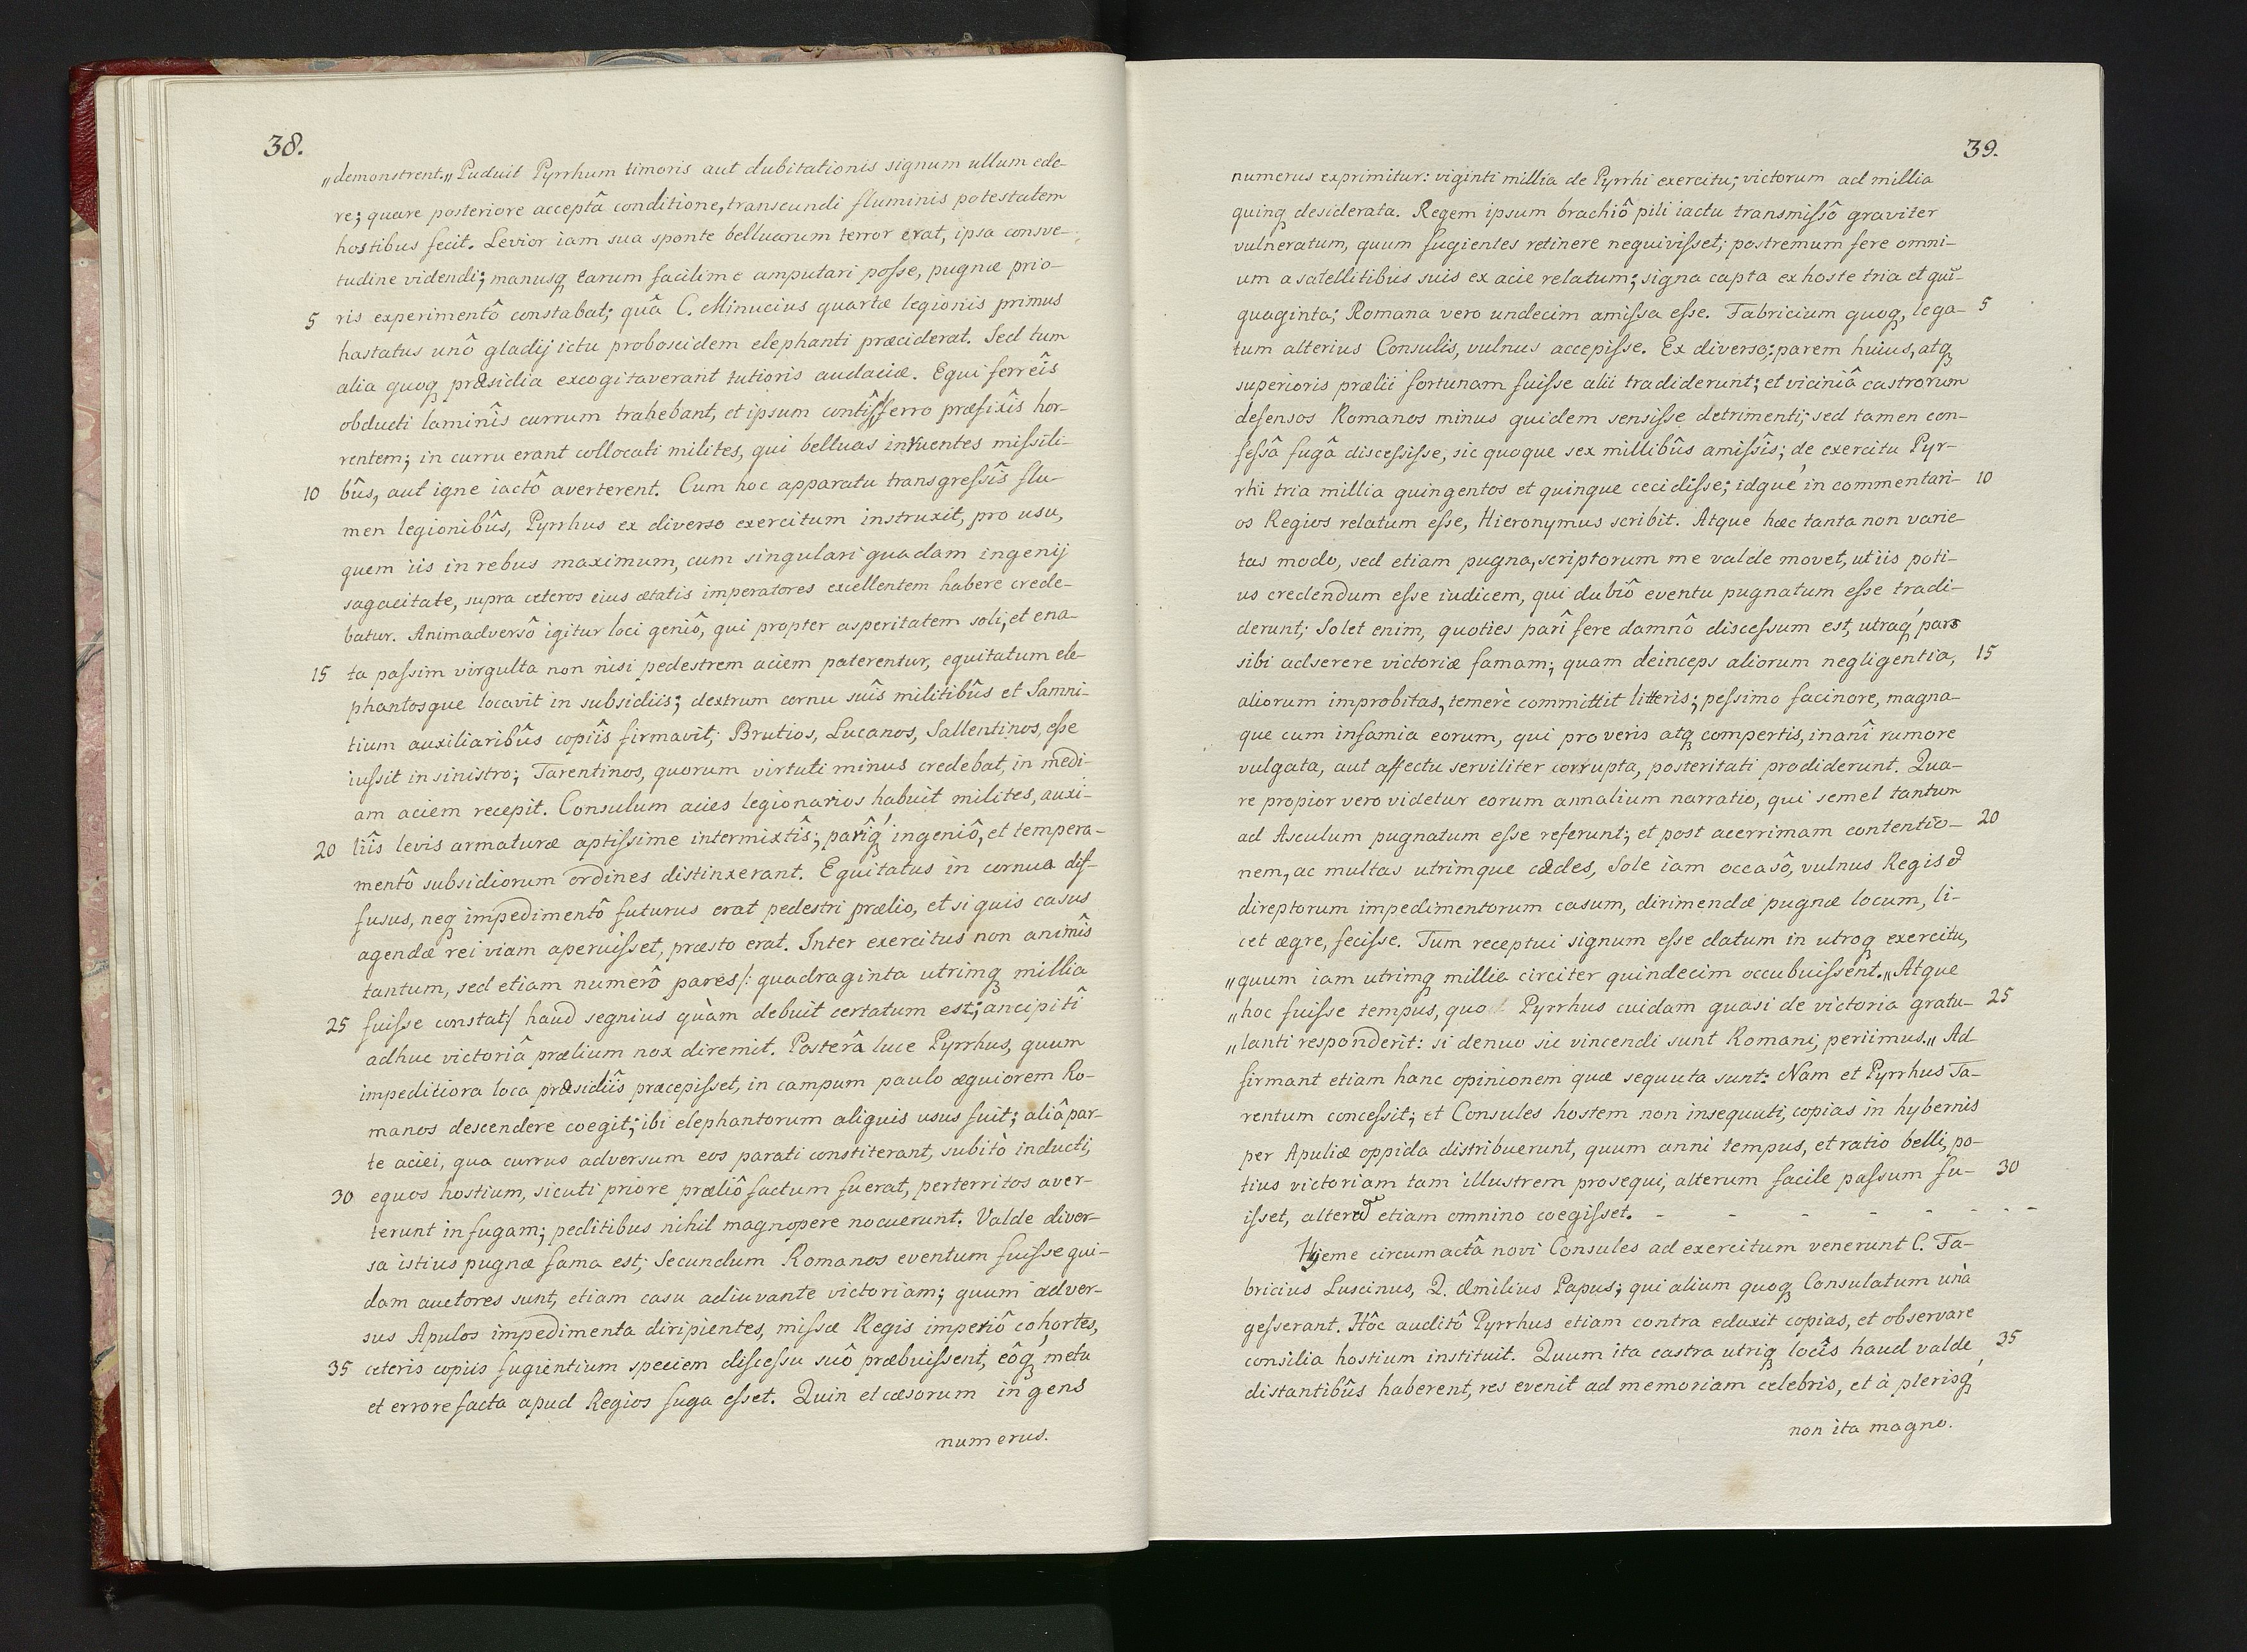 38.
„demonstrent.„ Puduit Pyrrhum timoris aut dubitationis signum ullum ede-
re; quare posteriore acceptâ conditione, transeundi fluminis potestatem
hostibus fecit. Levior iam sua sponte belluarum terror erat, ipsa consve-
tudine videndi; manusq earum facilime amputari posse, pugnæ prio-
5 ris experimentô constabat; quâ C. Minucius quartæ legionis primus
hastatus unô gladij ictu proboscidem elephanti præciderat. Sed tum
alia quoq præsidia excogitaverant tutioris audaciæ. Equi ferreîs
obducti laminîs currum trahebant, et ipsum contîs ferro præfixîs hor-
rentem; in curru erant collocati milites, qui belluas inruentes missili-
10 bûs, aut igne iactô averterent. Cum hoc apparatu transgressîs flu-
men legionibûs, Pyrrhus ex diverso exercitum instruxit, pro usu,
quem iis in rebus maximum, cum singulari quadam ingenij
sagacitate, supra ceteros eius ætatis imperatores excellentem habere crede-
batur. Animadversô igitur loci geniô, qui propter asperitatem soli, et ena-
15 ta passim virgulta non nisi pedestrem aciem paterentur, equitatum ele-
phantosque locavit in subsidiis; dextrum cornu suîs militibûs et Samni-
tium auxiliaribûs copiîs firmavit; Brutios, Lucanos, Sallentinos, esse
iussit in sinistro; Tarentinos, quorum virtuti minus credebat, in medi-
am aciem recepit. Consulum acies legionarios habuit milites, auxi-
20 liîs levis armaturæ aptissime intermixtîs; parîq ingeniô, et tempera-
mentô subsidiorum ordines distinxerant. Equitatus in cornua dif-
fusus, neq impedimentô futurus erat pedestri prælio, et si quis casus
agendæ rei viam aperuisset, præsto erat. Inter exercitus non animîs
tantum, sed etiam numerô pares /: quadraginta utrimq millia
25 fuisse constat :/ haud segnius quàm debuit certatum est; ancipitî
adhuc victoriâ prælium nox diremit. Posterâ luce Pyrrhus, quum
impeditiora loca præsidiîs præcepisset, in campum paulo æquiorem Ro-
manos descendere coegit; ibi elephantorum aliquis usus fuit; aliâ par-
te aciei, qua currus adversum eos parati constiterant, subitò inducti,
30 equos hostium, sicuti priore præliô factum fuerat, perterritos aver-
terunt in fugam; peditibus nihil magnopere nocuerunt. Valde diver-
sa istius pugnæ fama est; Secundum Romanos eventum fuisse qui-
dam auctores sunt, etiam casu adiuvante victoriam; quum adver-
sus Apulos impedimenta diripientes, missæ Regis imperiô cohortes,
35 ceteris copiis fugientium speciem discessu suô præbuissent, eôq metu
et errore facta apud Regios fuga esset. Quin et cæsorum ingens
numerus.
39.
numerus exprimitur: viginti millia de Pyrrhi exercitu; victorum ad millia
quinq desiderata. Regem ipsum brachiô pili iactu transmissô graviter
vulneratum, quum fugientes retinere nequivisset; postremum fere omni-
um a satellitibus suis ex acie relatum; signa capta ex hoste tria et quī-
quaginta; Romana vero undecim amissa esse. Fabricium quoq, lega- 5
tum alterius Consulis, vulnus accepisse. Ex diverso; parem huius, atq
superioris prælii fortunam fuisse alii tradiderunt; et viciniâ castrorum
defensos Romanos minus quidem sensisse detrimenti; sed tamen con-
fessâ fugâ discessisse, sic quoque sex millibûs amissîs; de exercitu Pyr-
rhi tria millia quingentos et quinque cecidisse; idque in commentari- 10
os Regios relatum esse, Hieronymus scribit. Atque hæc tanta non varie-
tas modo, sed etiam pugna, scriptorum me valde movet, ut iis poti-
us credendum esse iudicem, qui dubiô eventu pugnatum esse tradi-
derunt; Solet enim, quoties parî fere damnô discessum est, utraq pars
sibi adserere victoriæ famam; quam deinceps aliorum negligentia, 15
aliorum improbitas, temerè committit litteris; pessimo facinore, magna-
que cum infamia eorum, qui pro veris atq compertis, inanî rumore
vulgata, aut affectu serviliter corrupta, posteritati prodiderunt. Qua-
re propior vero videtur eorum annalium narratio, qui semel tantum
ad Asculum pugnatum esse referunt; et post acerrimam contentio- 20
nem, ac multas utrimque cædes, Sole iam occasô, vulnus Regis et
direptorum impedimentorum casum, dirimendæ pugnæ locum, li-
cet ægre, fecisse. Tum receptui signum esse datum in utroq exercitu,
„quum iam utrimq millia circiter quindecim occubuissent.„ Atque
„hoc fuisse tempus, quo Pyrrhus cuidam quasi de victoria gratu- 25
„lanti responderit: si denuo sic vincendi sunt Romani, periimus.„ Ad
firmant etiam hanc opinionem quæ sequuta sunt: Nam et Pyrrhus Ta-
rentum concessit; et Consules hostem non insequuti, copias in hybernis
per Apuliæ oppida distribuerunt, quum anni tempus, et ratio belli, po-
tius victoriam tam illustrem prosequi, alterum facile passum fu- 30
isset, altera etiam omnino coegisset. - - - - - - - -
Hyeme circumactâ novi Consules ad exercitum venerunt C. Fa-
bricius Luscinus, Q. Æmilius Papus; qui alium quoq Consulatum unà
gesserant. Hôc auditô Pyrrhus etiam contra eduxit copias, et observare
consilia hostium instituit. Quum ita castra utriq locîs haud valde 35
distantibûs haberent, res evenit ad memoriam celebris, et à plerisq
non ita magno.